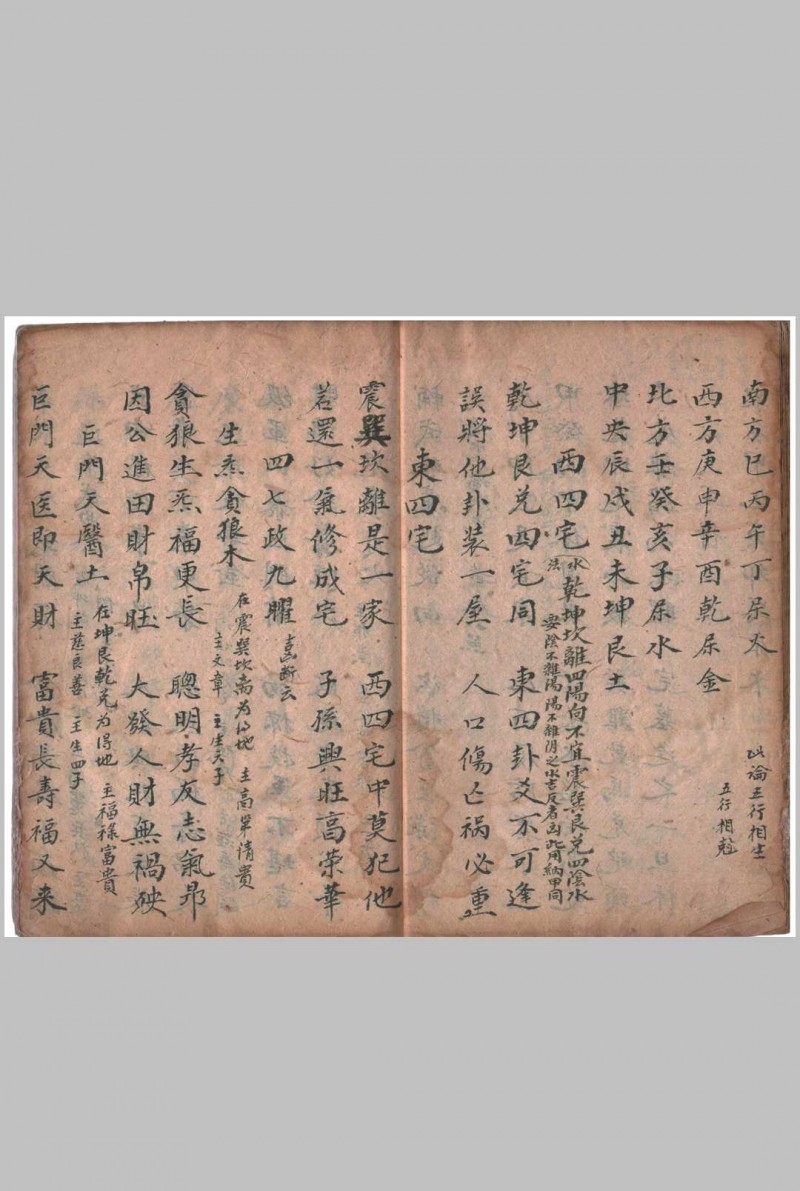 南方巳丙午丁屬火
此論五行相生
五行相尅
西方庚申辛酉乾屬金
北方壬癸亥子屬水
中央辰戌丑未坤艮土
西四宅
水法
乾坤坎離四陽向不宜震巽艮兌四陰水
安陰不雜陽陽不雜阴之水吉反者凶此用納甲同
乾坤艮兌四宅同 東四卦爻不可逢
誤將他卦装一屋 人口傷亡祸必重
東四宅
震巽坎離是一家 西四宅中莫犯他
若還一氣修成宅 子孫興旺高荣華
四七政九曜
生炁貪狼木
在震巽坎高为得地 主高單清貴
主文章 主生天子
貪狼生炁福更長 聰明孝友志氣昂
因公進田財帛旺 大發人財無禍殃
巨門天醫土
在坤艮乾兌为得地 主福祿富貴
主慈良善 主生四子
巨門天医即天財 富貴長壽福又来